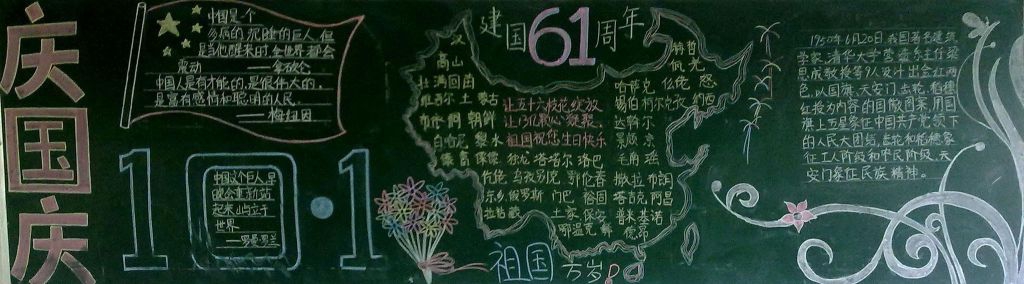 庆
国
庆
中国是个
多病的沉睡的巨人,但
是当他醒来时,全世界都会
震动 ——拿破仑
中国人是有才能的,是很伟大的,
是富有感情和聪明的人民
——梅纽因
10·1
中国这个巨人,早
晚会重新站
起来,屹立于
世界
——罗曼罗兰
建国61周年
汉
高山
壮 满 回 苗
维吾尔 土 蒙古
让五十六枝花绽放
让13亿颗心凝聚
祖国祝您生日快乐
哈萨克 仡佬 怒
锡伯 柯尔克孜 纳西
达斡尔
景颇 京
毛南 瑶
独龙 塔塔尔 珞巴
乌孜别克 鄂伦春
撒拉 布朗
东乡 俄罗斯 门巴 裕固
塔吉克 阿昌
拉祜 藏
土家 保安
普米 基诺
鄂温克
德昂
祖国万岁!
1950年6月20日,我国著名建筑
学家、清华大学营建系主任梁
思成教授等9人设计出金红两
色,以国旗、天安门、齿轮、稻穗
红绶为内容的国徽图案,用国
旗上五星象征中国共产党领下
的人民大团结,齿轮和稻穗象
征工人阶级和农民阶级,天
安门象征民族精神。